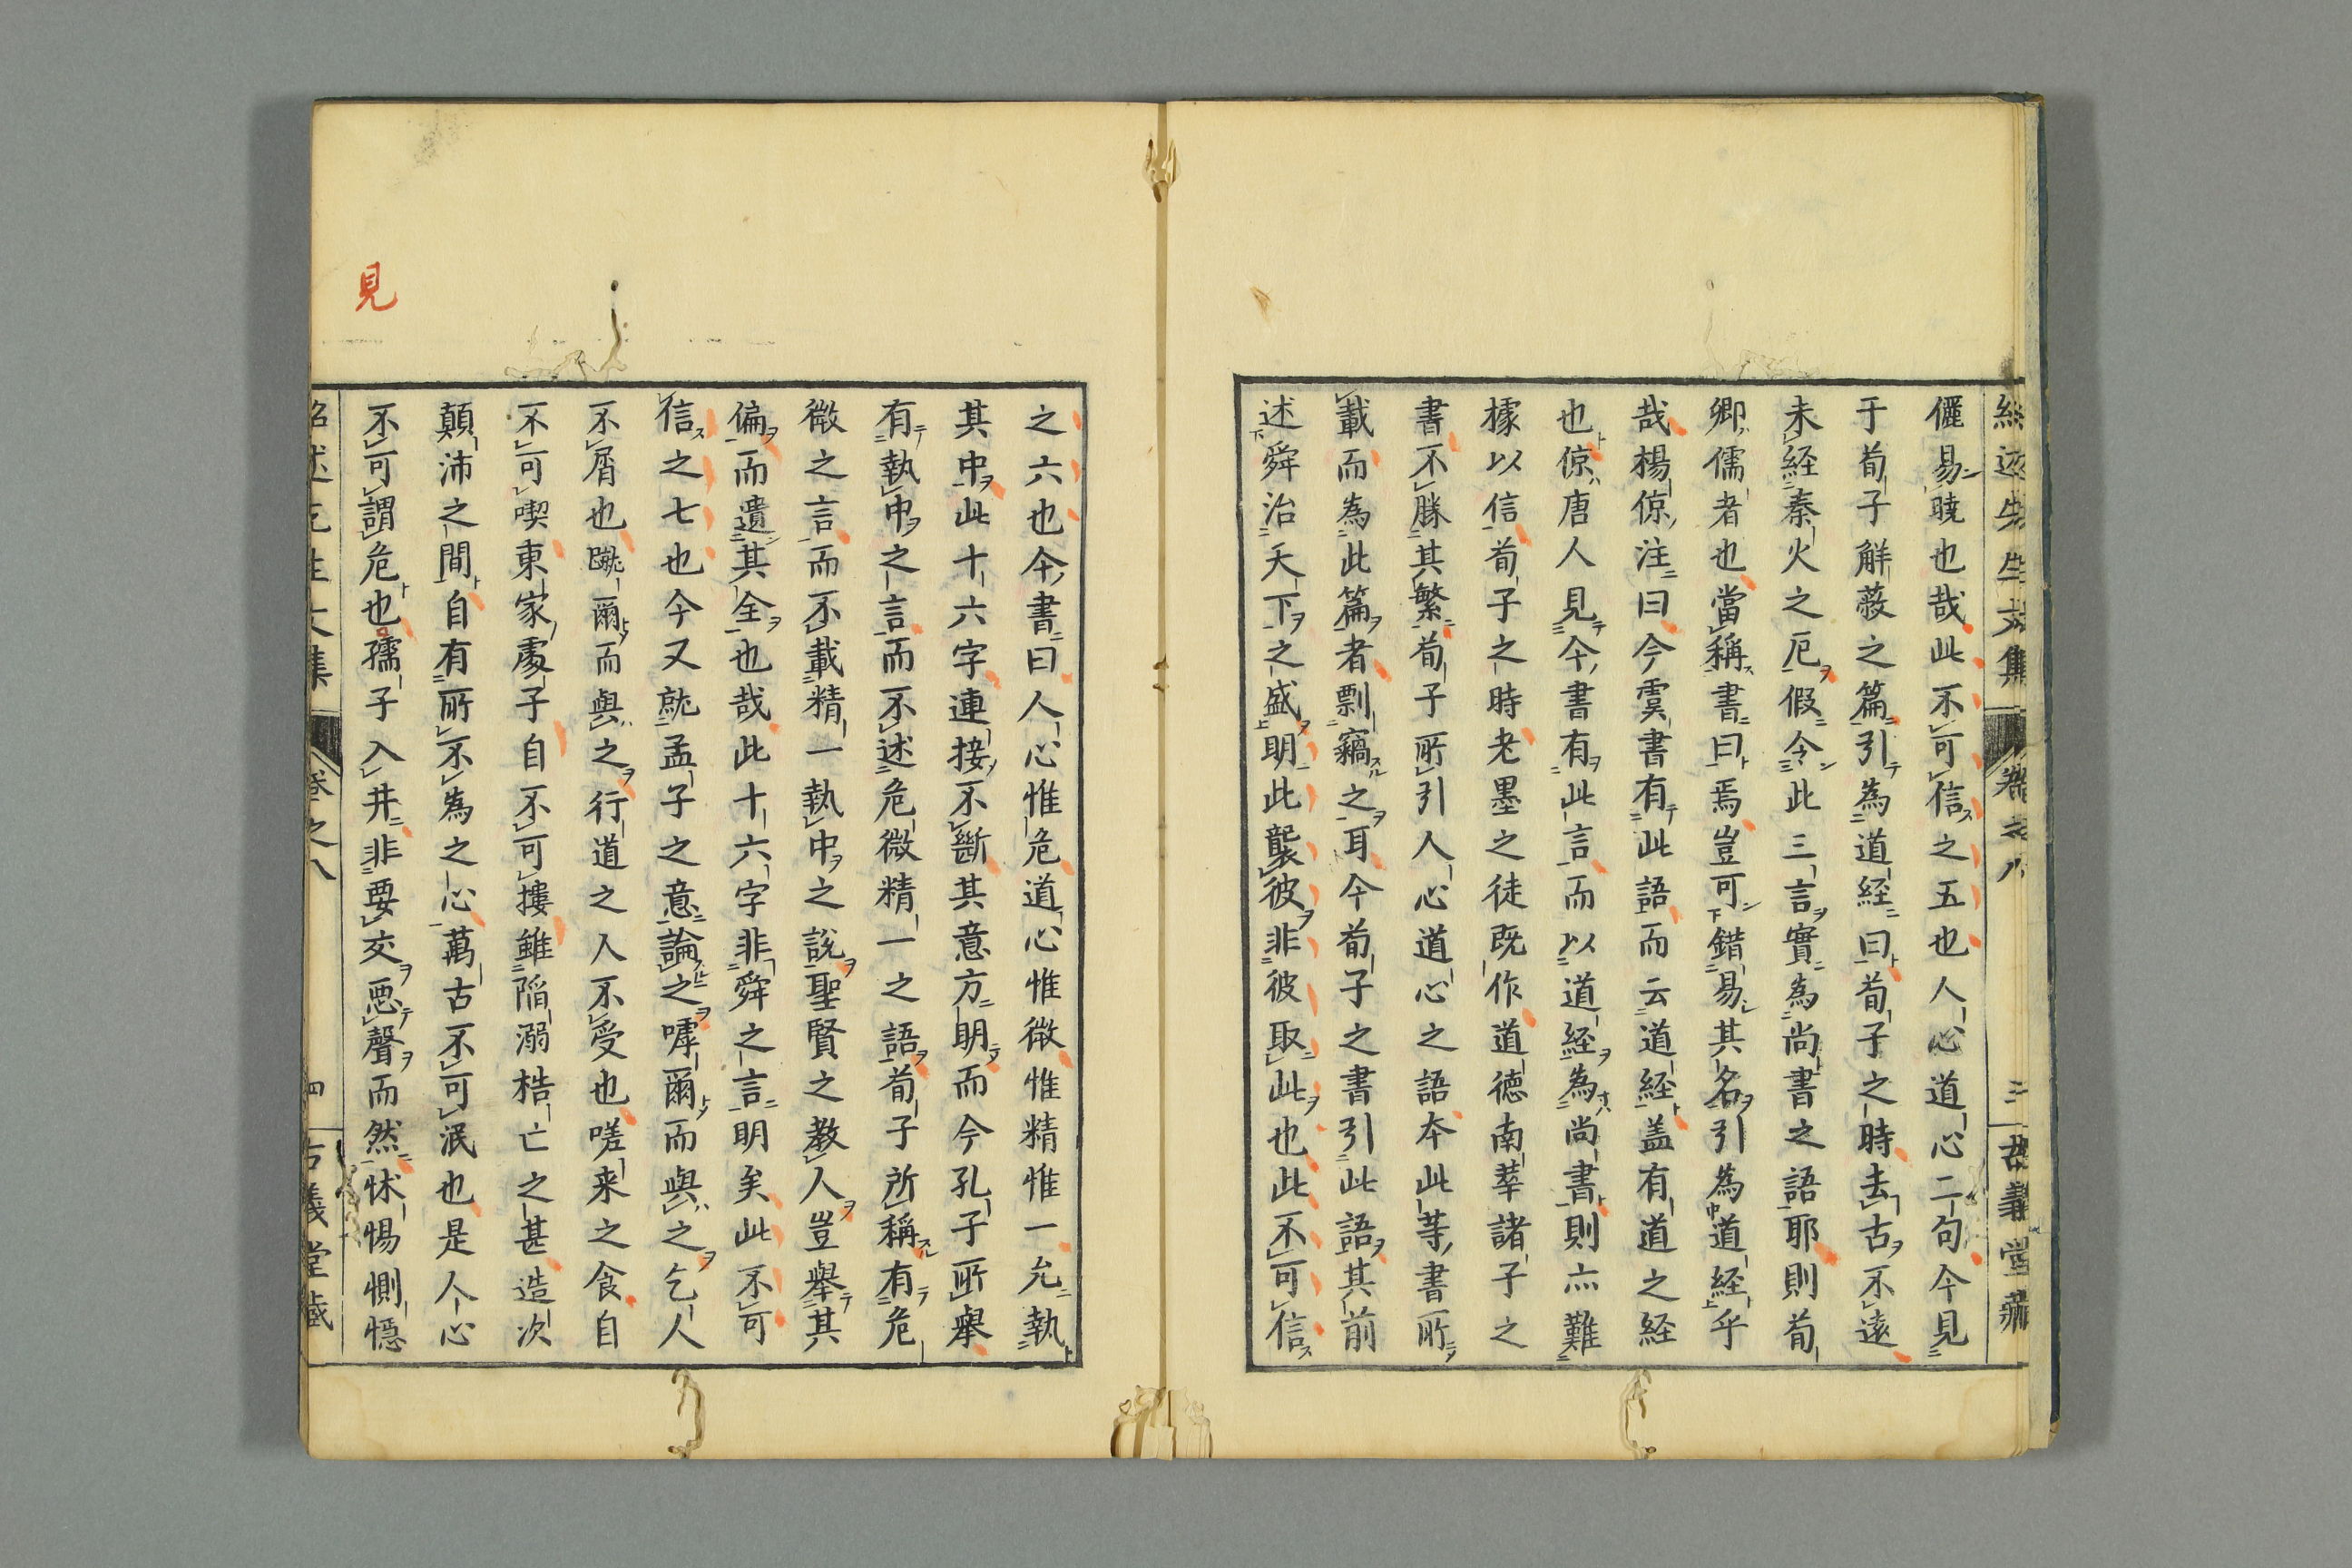 紹述先生文集 卷之八 三 古義堂藏
儷易曉也哉此不可信之五也人心道心二句今見
于荀子解蔽之篇引為道経曰荀子之時去古不遠
未経秦火之厄假令此三言實為尚書之語耶則荀
卿儒者也當稱書曰焉豈可錯易其名引為道経乎
哉楊倞注曰今虞書有此語而云道経盖有道之経
也倞唐人見今書有此言而以道経為尚書則亦難
據以信荀子之時老墨之徒既作道德南莘諸子之
書不勝其繁荀子所引人心道心之語本此等書所
載而為此篇者剽竊之耳今荀子之書引此語其前
述舜治天下之盛明此襲彼非彼取此也此不可信
之六也今書曰人心惟危道心惟微惟精惟一允執
其中此十六字連接不斷其意方明而今孔子所舉
有執中之言而不述危微精一之語荀子所稱有危
微之言而不載精一執中之說聖賢之教人豈舉其
偏而遺其全也哉此十六字非舜之言明矣此不可
信之七也今又就孟子之意論之嘑爾而與之乞人
不屑也蹴爾而與之行道之人不受也嗟来之食自
不可喫東家處子自不可摟雖陥溺梏亡之甚造次
顛沛之間自有所不為之心萬古不可泯也是人心
不可謂危也孺子入井非要交惡聲而然怵惕惻隱
紹述先生文集 卷之八 四 古義堂藏
見